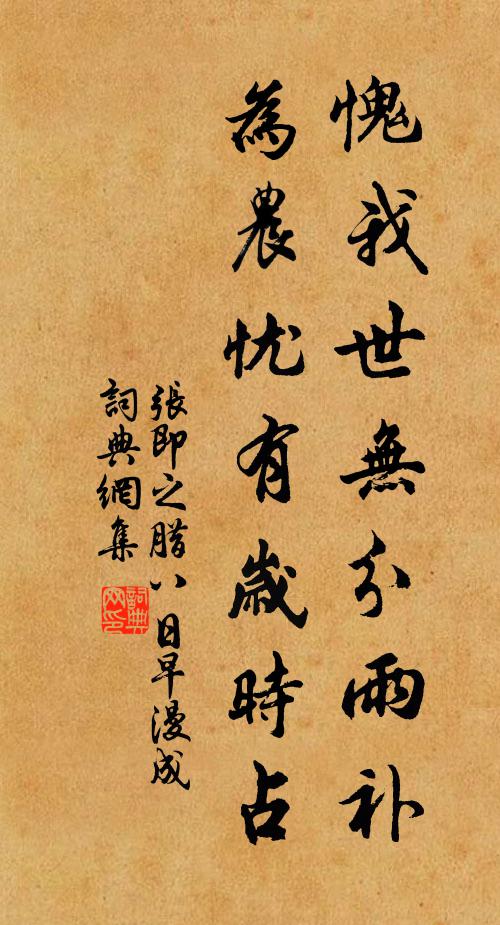 愧我世無分雨补
為農忧有歲時占
張即之腊八日早漫成
詞典網集
詞典网印